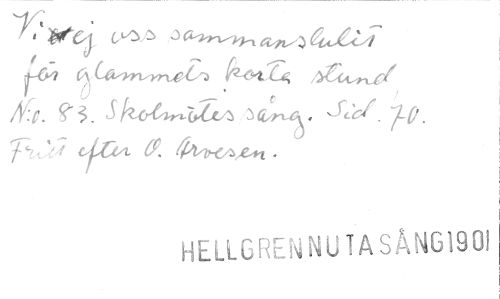 Vi ej oss sammanslutit
för glammets korta stund
N:o. 83. Skolmötessång. Sid. 70.
Fritt efter O. Arvesen.
HELLGREN NUTASÅNG 1901